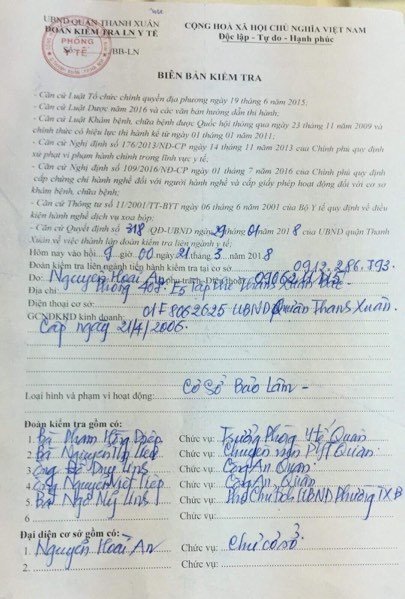 UBND QUẬN THANH XUÂN
ĐOÀN KIỂM TRA LN Y TẾ
CỘNG HOÀ XÃ HỘI CHỦ NGHĨA VIỆT NAM
Độc lập - Tự do - Hạnh phúc
PHÒNG
Y TẾ
/BB-LN
BIÊN BẢN KIỂM TRA
- Căn cứ Luật Tổ chức chính quyền địa phương ngày 19 tháng 6 năm 2015;
- Căn cứ Luật Dược năm 2016 và các văn bản hướng dẫn thi hành;
- Căn cứ Luật Khám bệnh, chữa bệnh được Quốc hội thông qua ngày 23 tháng 11 năm 2009 và
chính thức có hiệu lực thi hành kể từ ngày 01 tháng 01 năm 2011;
- Căn cứ Nghị định số 176/2013/NĐ-CP ngày 14 tháng 11 năm 2013 của Chính phủ quy định
xử phạt vi phạm hành chính trong lĩnh vực y tế.
- Căn cứ Nghị định số 109/2016/NĐ-CP ngày 01 tháng 7 năm 2016 của Chính phủ quy định
cấp chứng chỉ hành nghề đối với người hành nghề và cấp giấy phép hoạt động đối với cơ sở
khám bệnh, chữa bệnh;
- Căn cứ Thông tư số 11/2001/TT-BYT ngày 06 tháng 6 năm 2001 của Bộ Y tế quy định về điều
kiện hành nghề dịch vụ xoa bóp;
- Căn cứ Quyết định số 318 QĐ-UBND ngày 29/01/2018 của UBND quận Thanh
Xuân về việc thành lập đoàn kiểm tra liên ngành y tế;
Hôm nay vào hồi 9 giờ 00 ngày 21 tháng 3 năm 2018
Đoàn kiểm tra liên ngành tiến hành kiểm tra tại cơ sở 0913.286.793
Do: Nguyễn Hoài An phụ trách. Điện thoại:
Địa chỉ: Phòng 408 - E5 Tập thể Thanh Xuân Bắc
Điện thoại cơ sở:
GCNĐKKD kinh doanh: 01F8062625 UBND Quận Thanh Xuân
Cấp ngày 21/4/2006.
Loại hình và phạm vi hoạt động: Cơ Sở Bảo Lâm -
Đoàn kiểm tra gồm có:
1. Bà Phạm Hồng Diệp Chức vụ: Trưởng Phòng Y tế Quận
2. Bà Nguyễn Thị Chức vụ: Chuyên viên PYT Quận
3. Ông Duy Chức vụ: Công An Quận
4. Ông Nguyễn Việt Tiệp Chức vụ: Công An Quận
5. Bà Ngô Mỹ Chức vụ: Phó Chủ tịch UBND Phường TXB
6 Chức vụ:
Đại diện cơ sở gồm có:
1. Nguyễn Hoài An Chức vụ: Chủ cơ sở
2. Chức vụ: